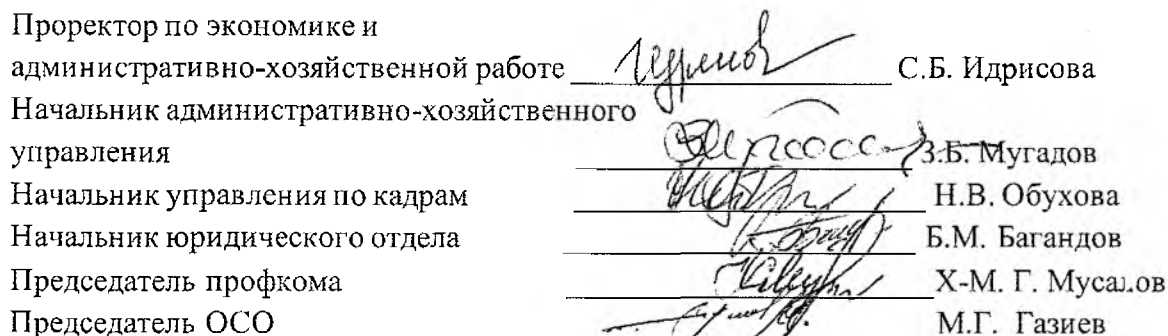 Проректор по экономике и
административно-хозяйственной работе С.Б. Идрисова
Начальник административно-хозяйственного
управления З.Б. Мугадов
Начальник управления по кадрам Н.В. Обухова
Начальник юридического отдела Б.М. Багандов
Председатель профкома Х-М. Г. Мусалов
Председатель ОСО М.Г. Газиев